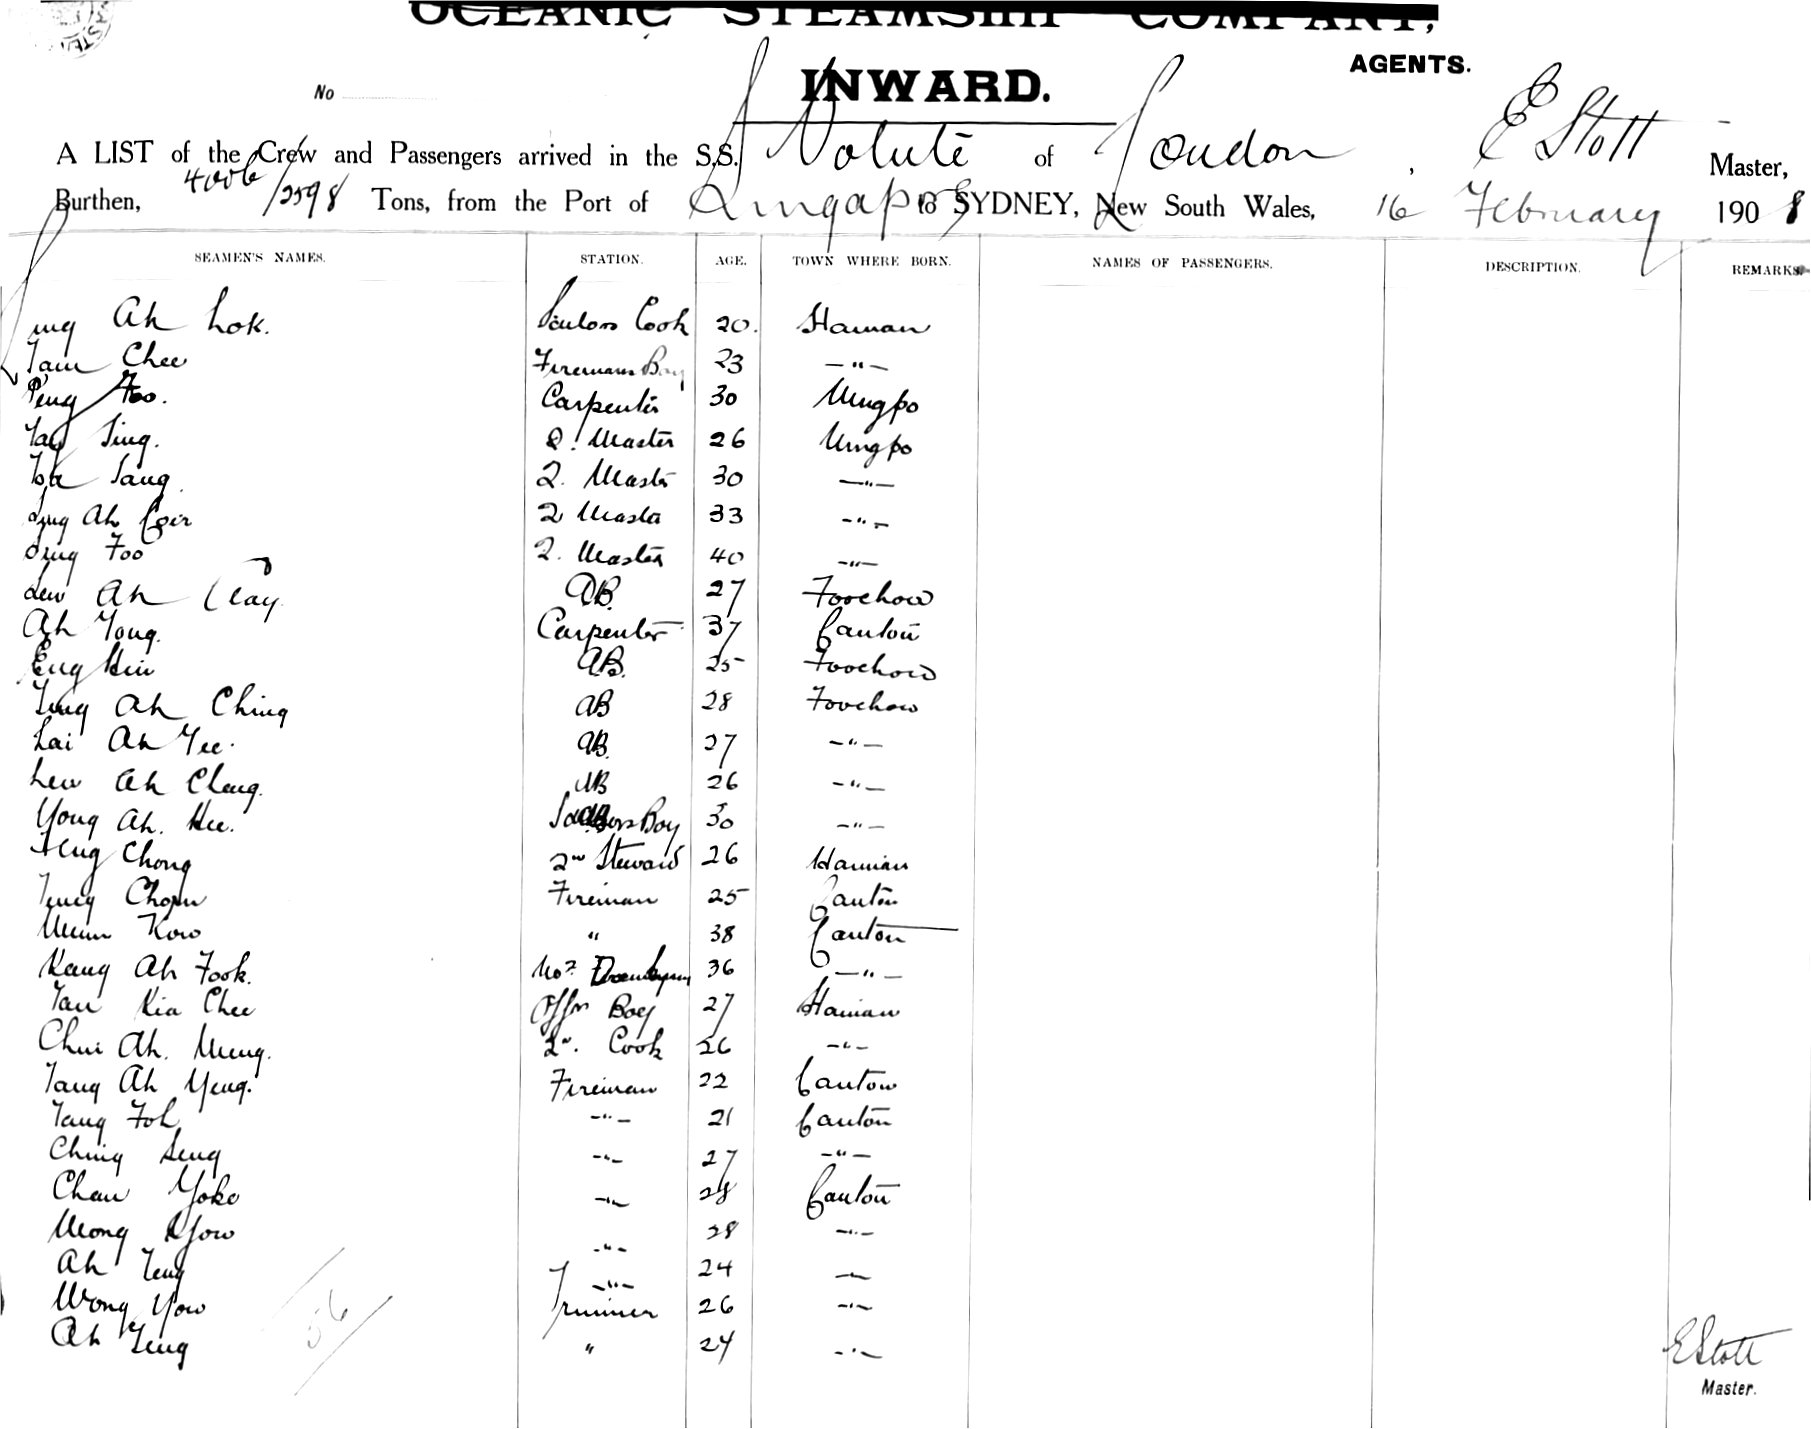 OCEANIC STEAMSHIP COMPANY,
AGENTS.
No
INWARD.
A LIST of the Crew and Passengers arrived in the S.S. Volute of London, E Stott Master,
Burthen, 4006/2598 Tons, from the Port of Singapore to SYDNEY, New South Wales, 16 February 1908
SEAMEN'S NAMES. STATION. AGE. TOWN WHERE BORN. NAMES OF PASSENGERS. DESCRIPTION. REMARKS
Ah Lok. Sailors Cook 20. Hainan
Tam Chee Firemans Boy 23 —"—
Peng Foo. Carpenter 30 Ningpo
Tay Sing. Q. Master 26 Ningpo
Sang Q. Master 30 —"—
Ah Q Master 33 —"—
Foo Q. Master 40 —"—
Lew Ah AB. 27 Foochow
Ah Yong. Carpenter 37 Canton
Eng Hin AB. 25 Foochow
Ah Ching AB 28 Foochow
Lai Ah Yee. AB. 27 —"—
Lew Ah Cheng. AB 26 —"—
Yong Ah. Hee. Sailors Boy 30 —"—
Heng Chong 2nd Steward 26 Hainan
Fireman 25 Canton
Kow " 38 Canton
Kang Ah Fook. No 2 36 —"—
Tan Kia Chee Offrs Boy 27 Hainan
Chui Ah. Meng. 2nd. Cook 26 —"—
Tang Ah Yeng. Fireman 22 Canton
Tang Foh —"— 21 Canton
Ching Seng —"— 27 —"—
Chan Yoke —"— 28 Canton
Wong Kow —"— 28 —"—
Ah Teng —"— 24 —"—
Wong Yow Trimmer 26 —"—
Ah Teng " 24 —"—
56
E Stott
Master.